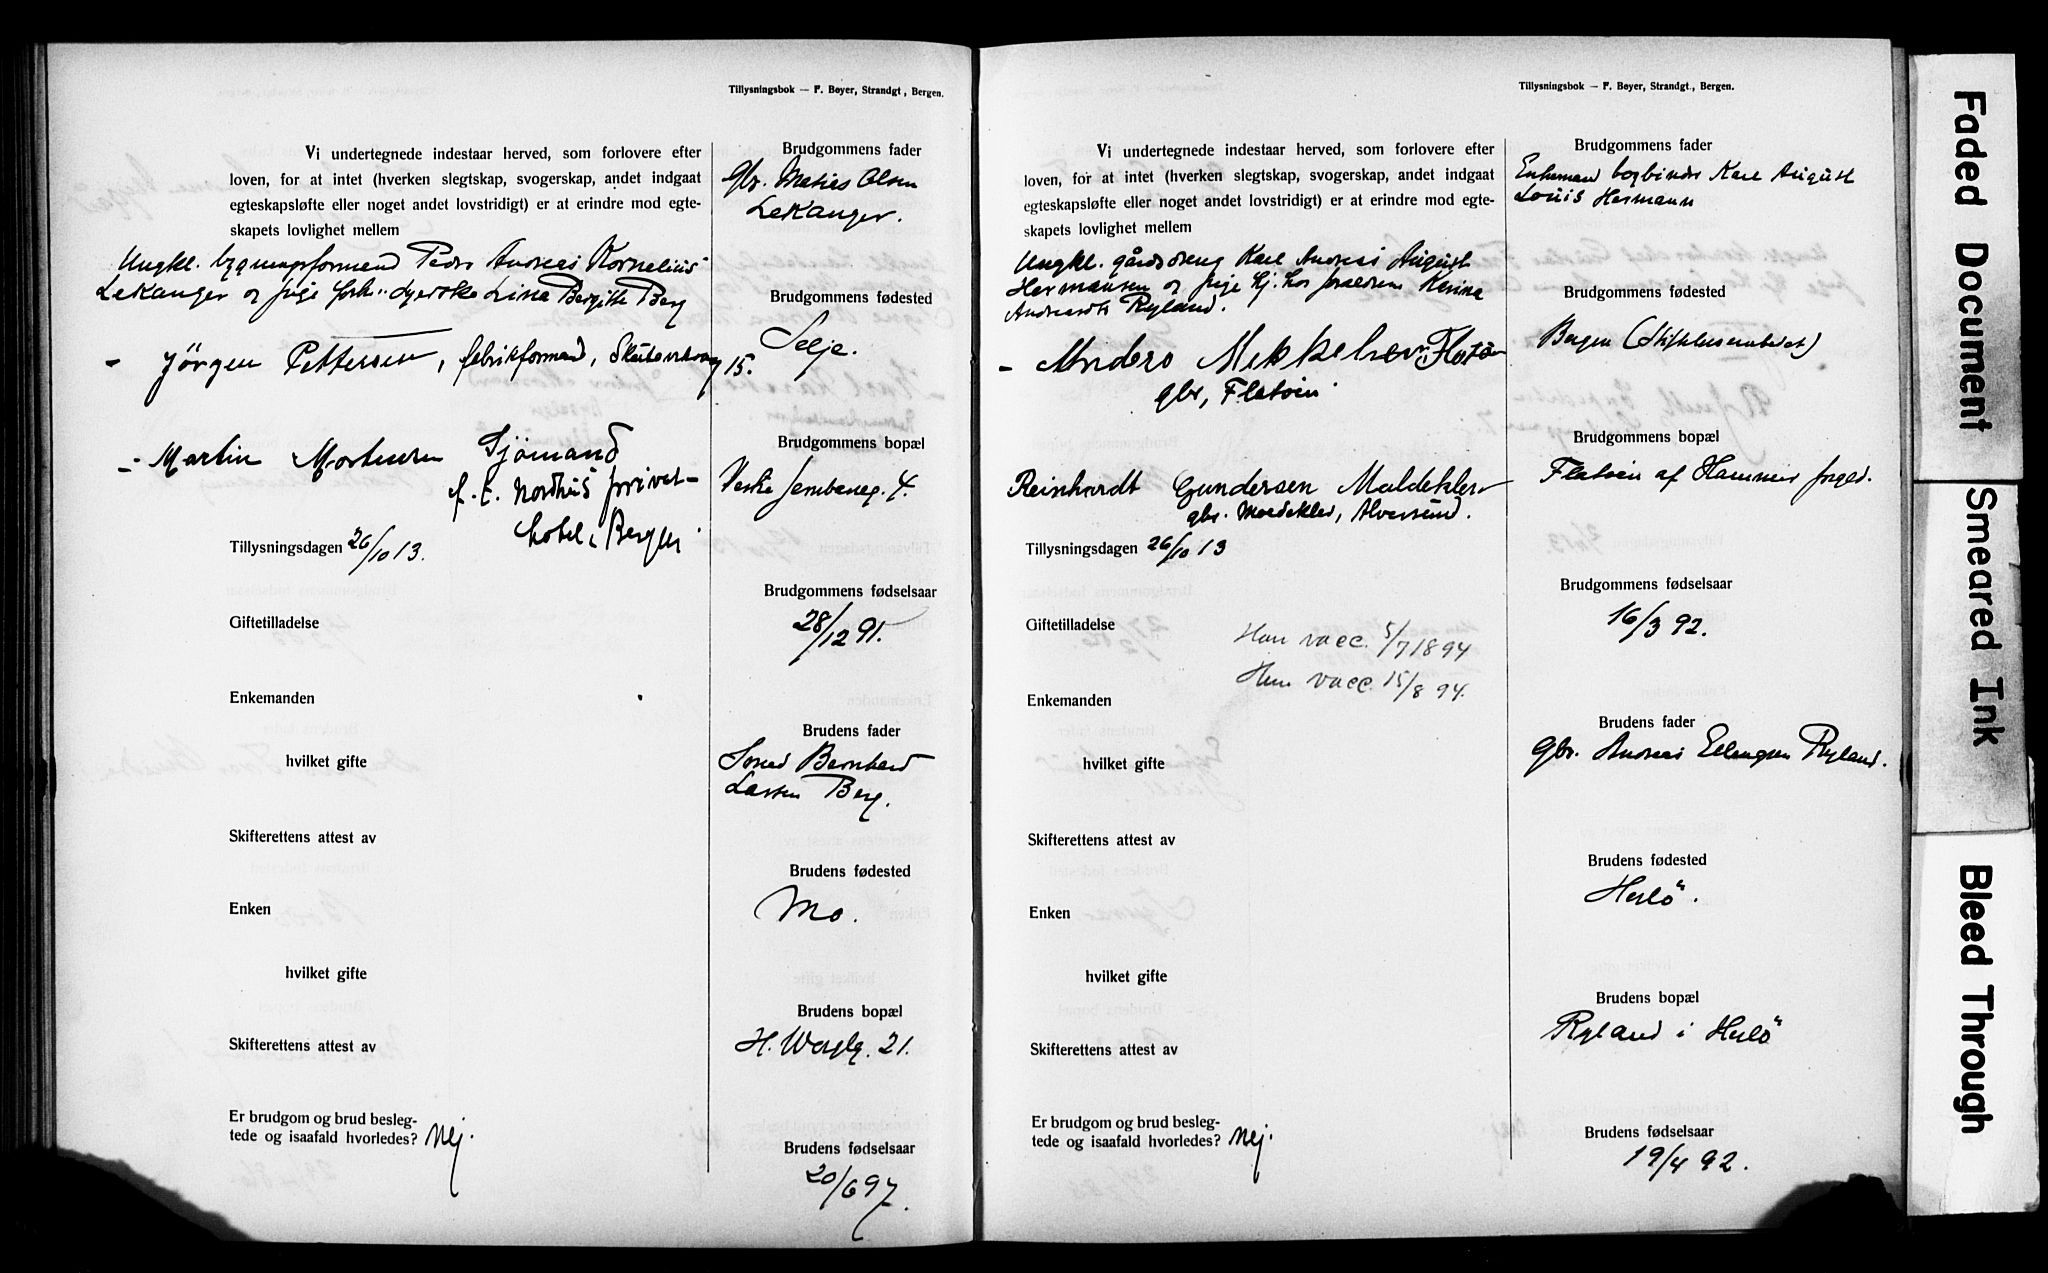 Tillysningsbok — F. Bøyer, Strandgt., Bergen.
Vi undertegnede indestaar herved, som forlovere efter
loven, for at intet (hverken slegtskap, svogerskap, andet indgaat
egteskapsløfte eller noget andet lovstridigt) er at erindre mod egte-
skapets lovlighet mellem
Ungkl. bygningsformand Peder Andreas Kornelius
Lekanger og pige forh. syerske Lina Bergitte Berg
– Jörgen Pettersen, fabrikformand, Skuteviksveg 15.
– Martin Mortensen Sjömand
f. t. Nordhus privat-
hotel i Bergen
Tillysningsdagen 26/10 13.
Giftetilladelse
Enkemanden
hvilket gifte
Skifterettens attest av
Enken
hvilket gifte
Skifterettens attest av
Er brudgom og brud besleg-
tede og isaafald hvorledes? Nej.
Brudgommens fader
Gbr. Matias Olsen
Lekanger.
Brudgommens fødested
Selje.
Brudgommens bopæl
4.
Brudgommens fødselsaar
28/12 91.
Brudens fader
Bernhard
Lassen Berg.
Brudens fødested
Mo.
Brudens bopæl
H. 21.
Brudens fødselsaar
20/6 97.
Tillysningsbok — F. Bøyer, Strandgt., Bergen.
Vi undertegnede indestaar herved, som forlovere efter
loven, for at intet (hverken slegtskap, svogerskap, andet indgaat
egteskapsløfte eller noget andet lovstridigt) er at erindre mod egte-
skapets lovlighet mellem
Ungkl. gårdsdreng Karl Andreas August
Hermansen og pige hj. hos forældrene Karina
Andreasdt. Ryland.
– Anders Mikkelsen Flatöen
gbr, Flatöen
Reinhardt Gundersen Maldeklev
gbr. Moldeklev, Alversund.
Tillysningsdagen 26/10 13
Giftetilladelse
Han vacc. 5/7 1894
Hun vacc. 15/8 94.
Enkemanden
hvilket gifte
Skifterettens attest av
Enken
hvilket gifte
Skifterettens attest av
Er brudgom og brud besleg-
tede og isaafald hvorledes? Nej.
Brudgommens fader
Enkemand bogbinder Karl August
Louis Hermann
Brudgommens fødested
Bergen (Stiftelsen)
Brudgommens bopæl
Flatöen af Hammer prgjld.
Brudgommens fødselsaar
16/3 92.
Brudens fader
Gbr. Andreas Ellingsen Ryland.
Brudens fødested
Herlö.
Brudens bopæl
Ryland i Herlö
Brudens fødselsaar
19/4 92.
Faded Document
Smeared Ink
Bleed Through